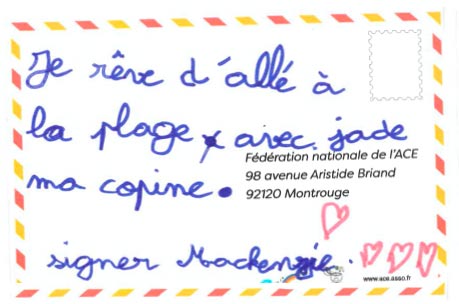 Je rêve d'allé à
la plage avec jade
Fédération nationale de l'ACE
98 avenue Aristide Briand
ma copine.
92120 Montrouge
signer Mackenzie.
www.ace.asso.fr